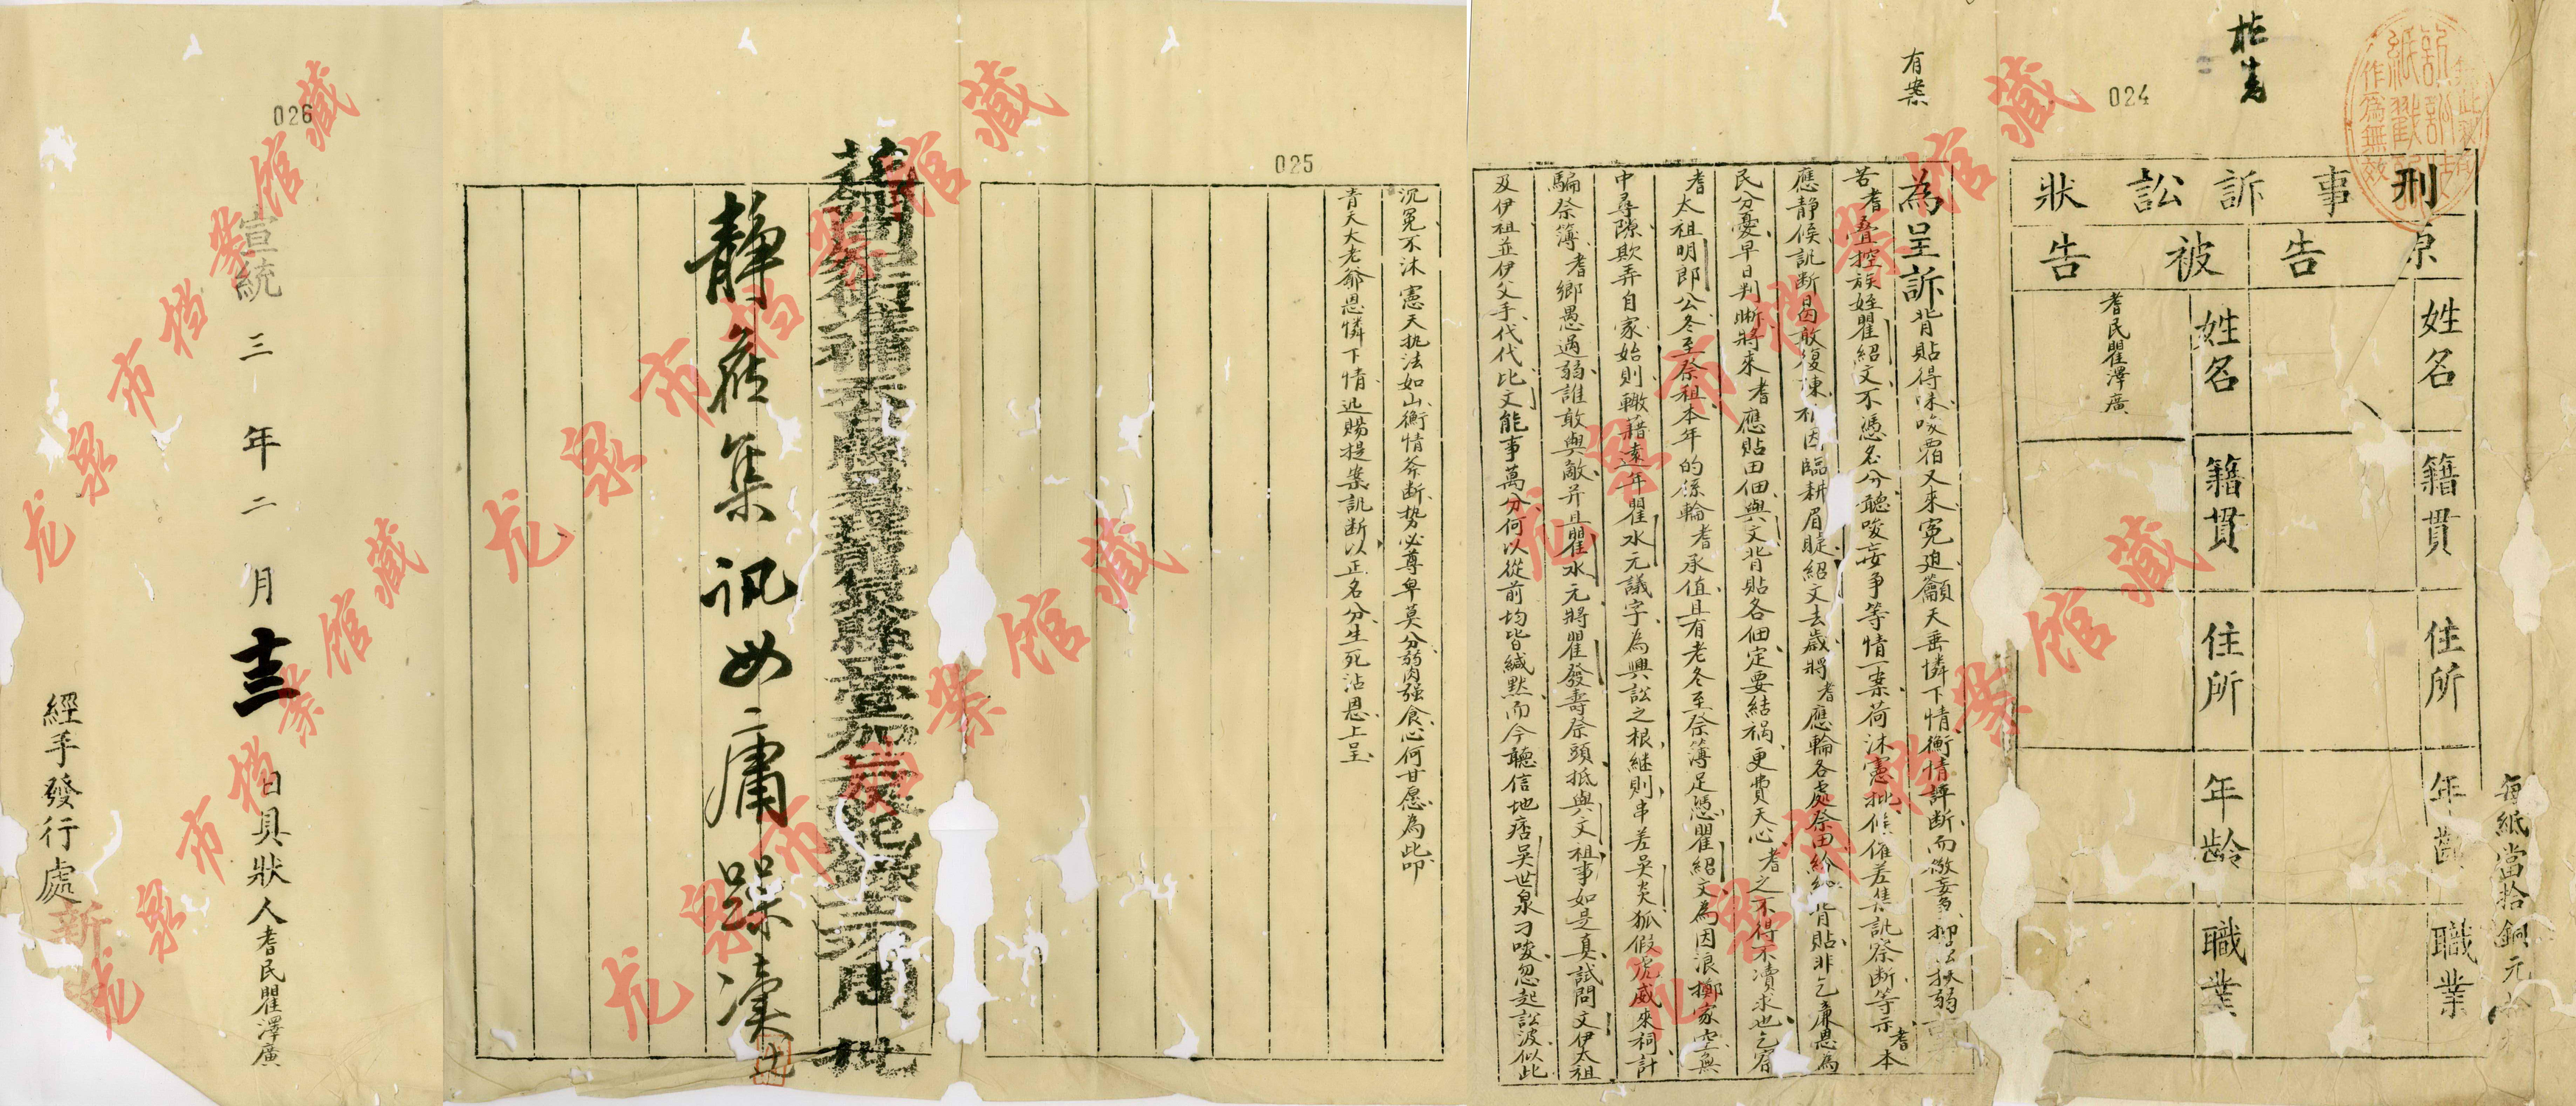 每紙當拾銅元
訴訟狀紙戳記
作為無效
024
批
刑事訴訟狀
原告
被告
姓名
籍貫
住所
年齡
職業
姓名
籍貫
住所
年齡
職業
耆民瞿澤廣
有案
為呈訴背貼得味唆霸又來冤迫籲天垂憐下情衡情詳斷而儆妄扶弱
苦耆疊控族姪瞿紹文不憑名分聽唆妄爭等情一案荷沐憲批候催差集訊察斷等示耆本
應靜候訊斷曷敢復凟因臨耕眉睫紹文去歲將耆應輪各處祭田紛紛背貼非乞廉恩為
民分憂早日判斷將來耆應貼田佃與文背貼各佃定要結禍更費天心耆之不得不凟求也乞窅
耆太祖明郎公冬至祭祖本年的係輪耆承值且有老冬至祭簿足憑瞿紹文為因浪擲家空無
中尋隙欺弄自家始則轍藉遠年瞿水元議字為興訟之根継則串差吳炎狐假虎威來祠計
騙祭簿耆鄉愚過弱誰敢與敵并且瞿水元將瞿發壽祭頭抵與文祖事如是真試問文伊太祖
及伊祖並伊父手代代比文能事萬分何以從前均皆緘默而今聽信地痞吳世泉刁唆忽起訟波似此
025
沉冤不沐憲天執法如山衡情斧斷勢必尊卑莫分弱肉强食心何甘愿為此叩
青天大老爺恩憐下情迅賜提案訊斷以正名分生死沾恩上呈
周 批
靜候集訊毋庸躁凟
026
宣統三年二月十三日具狀人耆民瞿澤廣
經手發行處
龙泉市档案馆藏
龙泉市档案馆藏
龙泉市档案馆藏
龙泉市档案馆藏
龙泉市档案馆藏
龙泉市档案馆藏